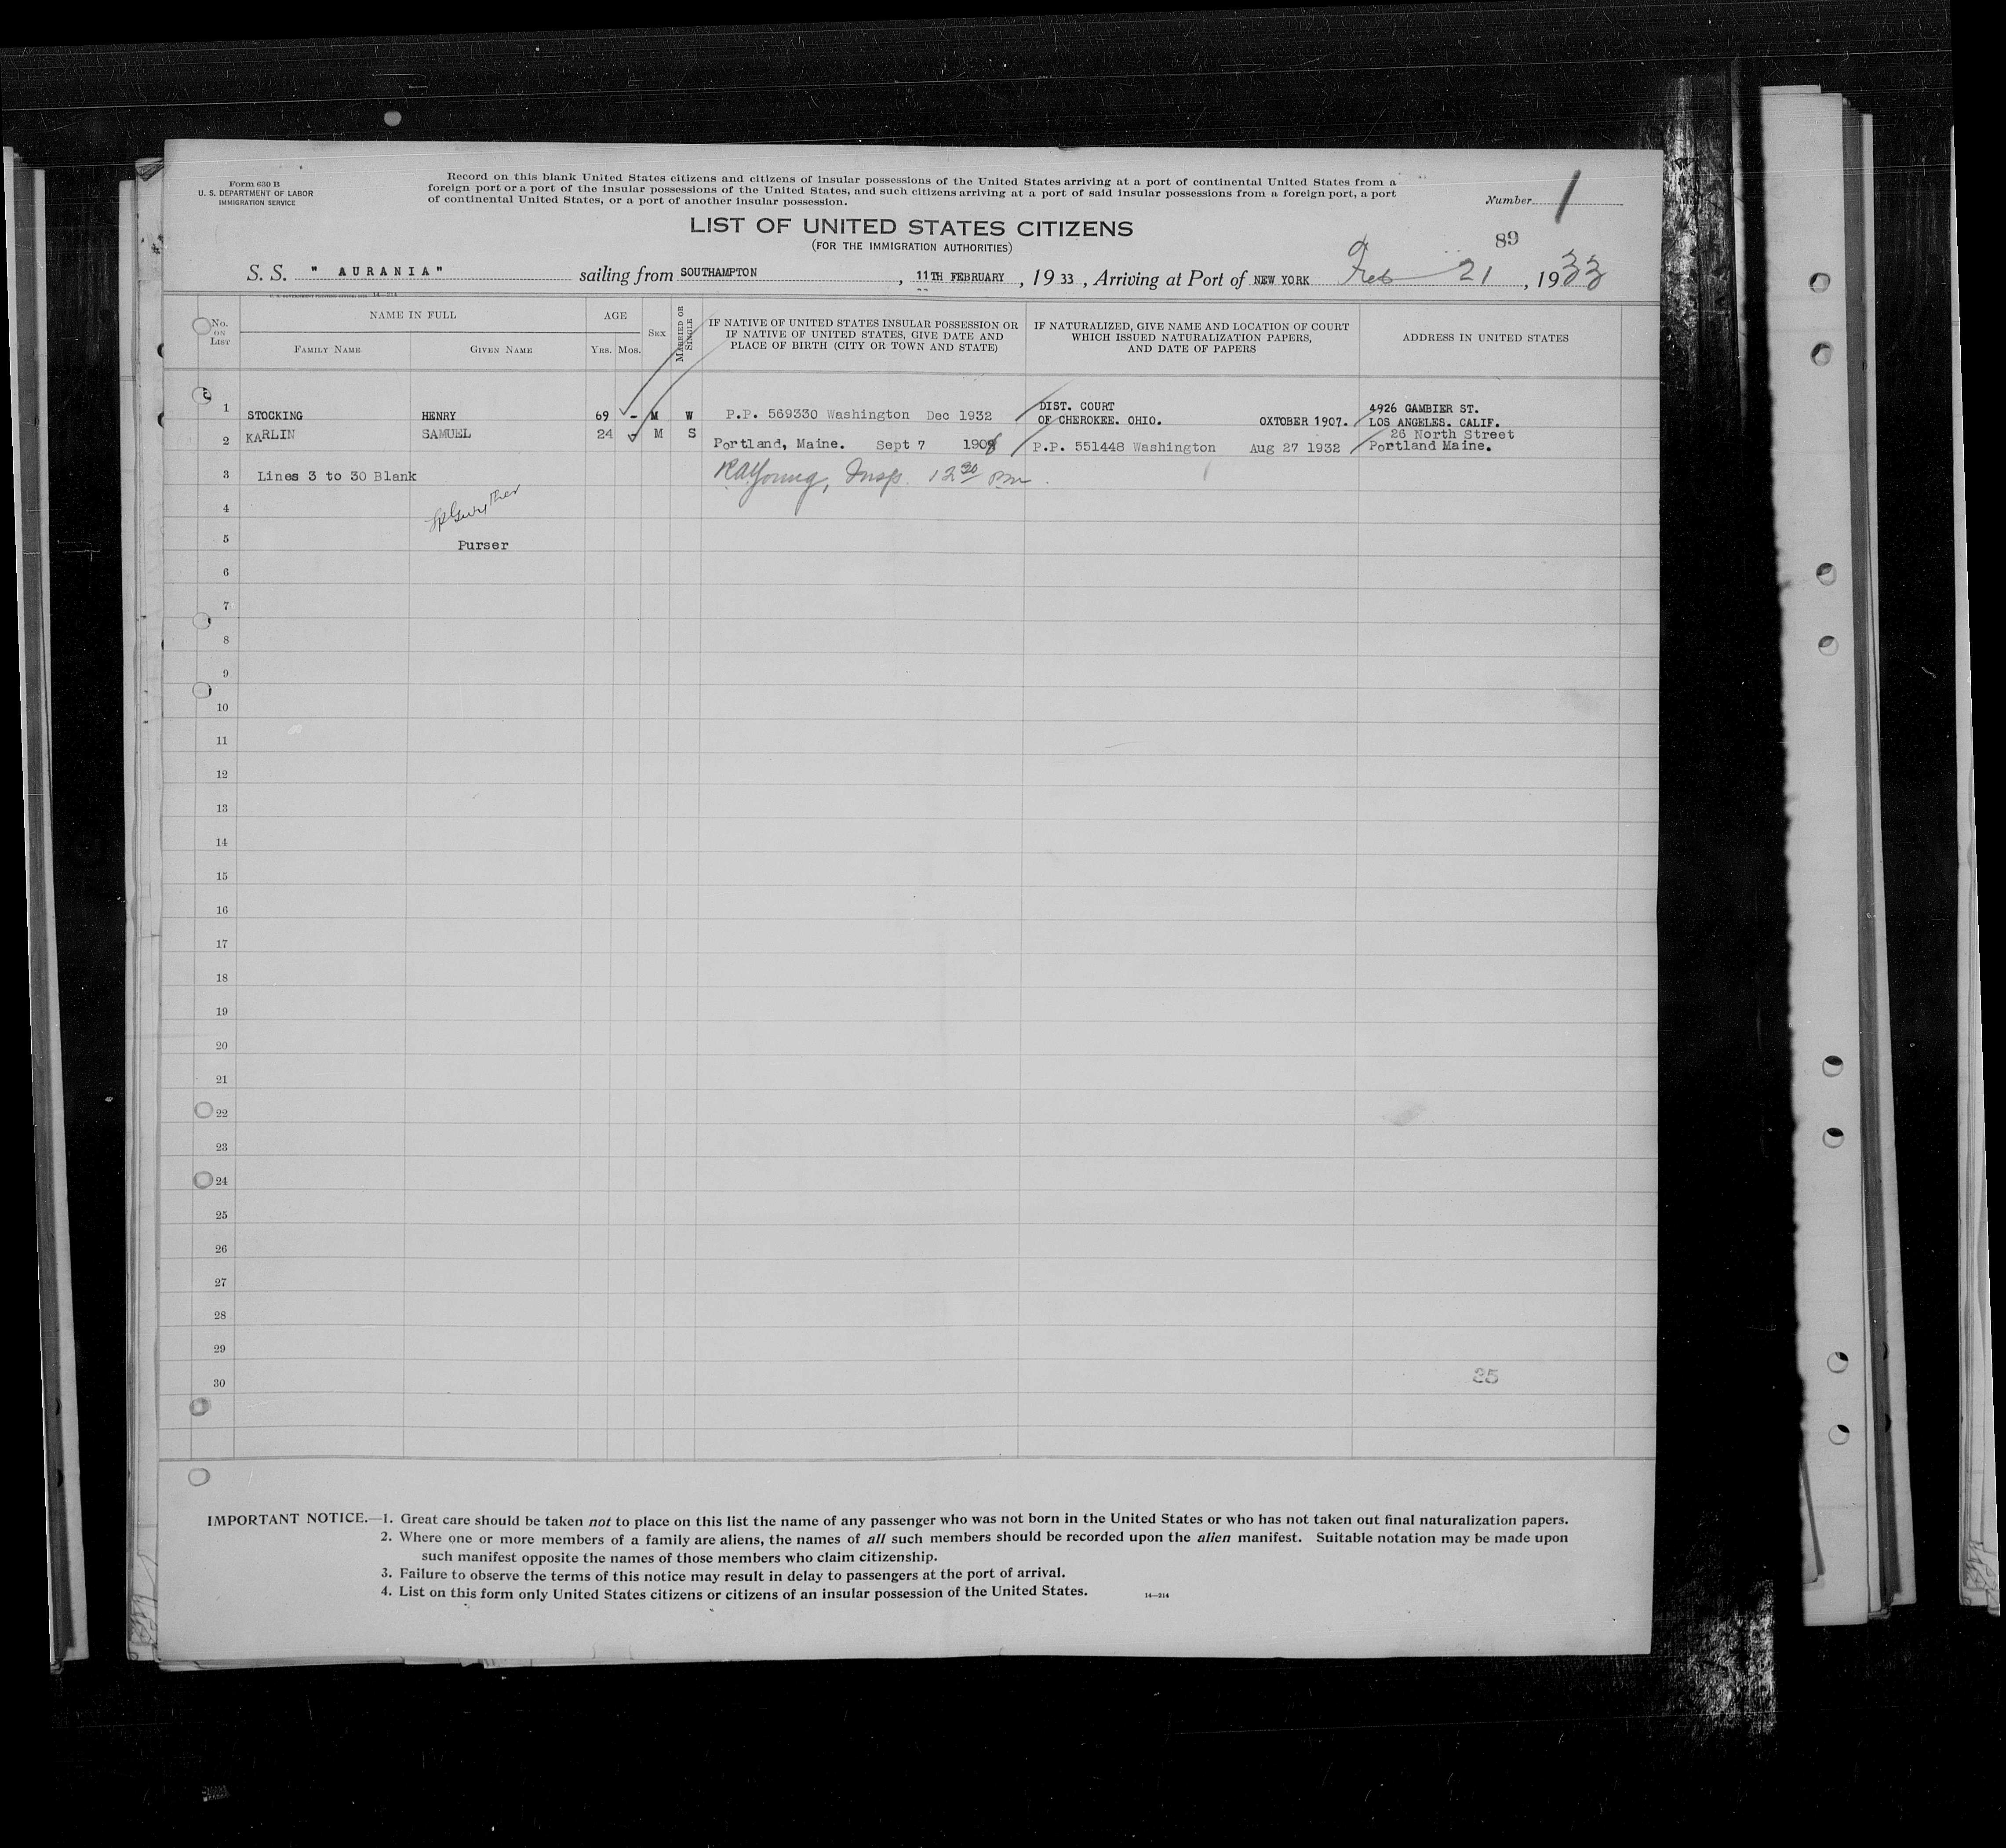 Form 630 B
U. S. DEPARTMENT OF LABOR
IMMIGRATION SERVICE
Record on this blank United States citizens and citizens of insular possessions of the United States arriving at a port of continental United States from a
foreign port or a port of the insular possessions of the United States, and such citizens arriving at a port of said insular possessions from a foreign port, a port
of continental United States, or a port of another insular possession.
Number 1
LIST OF UNITED STATES CITIZENS
(FOR THE IMMIGRATION AUTHORITIES)
89
S. S. " AURANIA " sailing from SOUTHAMPTON, 11TH FEBRUARY, 1933, Arriving at Port of NEW YORK Feb 21, 1933
No. ON LIST
NAME IN FULL
FAMILY NAME
GIVEN NAME
AGE
YRS. MOS.
SEX
MARRIED OR SINGLE
IF NATIVE OF UNITED STATES INSULAR POSSESSION OR
IF NATIVE OF UNITED STATES, GIVE DATE AND
PLACE OF BIRTH (CITY OR TOWN AND STATE)
IF NATURALIZED, GIVE NAME AND LOCATION OF COURT
WHICH ISSUED NATURALIZATION PAPERS,
AND DATE OF PAPERS
ADDRESS IN UNITED STATES
1 STOCKING HENRY 69 - M W P.P. 569330 Washington Dec 1932
DIST. COURT
OF CHEROKEE. OHIO. OXTOBER 1907.
4926 GAMBIER ST.
LOS ANGELES. CALIF.
2 KARLIN SAMUEL 24 - M S Portland, Maine. Sept 7 1908 P.P. 551448 Washington Aug 27 1932
26 North Street
Portland Maine.
3 Lines 3 to 30 Blank
RA Young, Insp. 12 30 pm
4
5 Purser
6
7
8
9
10
11
12
13
14
15
16
17
18
19
20
21
22
23
24
25
26
27
28
29
30
25
IMPORTANT NOTICE.—1. Great care should be taken not to place on this list the name of any passenger who was not born in the United States or who has not taken out final naturalization papers.
2. Where one or more members of a family are aliens, the names of all such members should be recorded upon the alien manifest. Suitable notation may be made upon
such manifest opposite the names of those members who claim citizenship.
3. Failure to observe the terms of this notice may result in delay to passengers at the port of arrival.
4. List on this form only United States citizens or citizens of an insular possession of the United States.
14—214